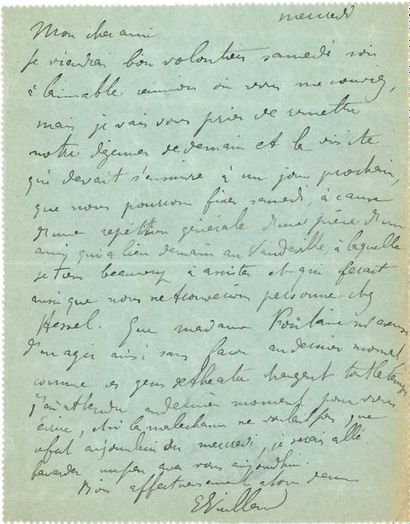 mercredi
Mon cher ami
Je viendrai bien volontiers samedi soir
à l'aimable réunion où vous me conviez,
mais je vais vous prier de remettre
notre déjeuner de demain et la visite
qui devait s'ensuivre à un jour prochain,
que nous pourrons fixer samedi, à cause
d'une répétition générale d'une pièce d'un
ami qui a lieu demain au Vaudeville à laquelle
je tiens beaucoup à assister et qui ferait
ainsi que nous ne trouverions personne chez
Hessel. Que madame Fontaine m'excuse
d'en agir ainsi sans façon au dernier moment
comme les gens de théâtre
J'ai attendu au dernier moment pour vous
et si la malechance ne voulait pas que ce
fut aujourd'hui mercredi, je serais allé
bavarder un peu avec vous aujourd'hui.
Bien affectueusement
E Vuillard